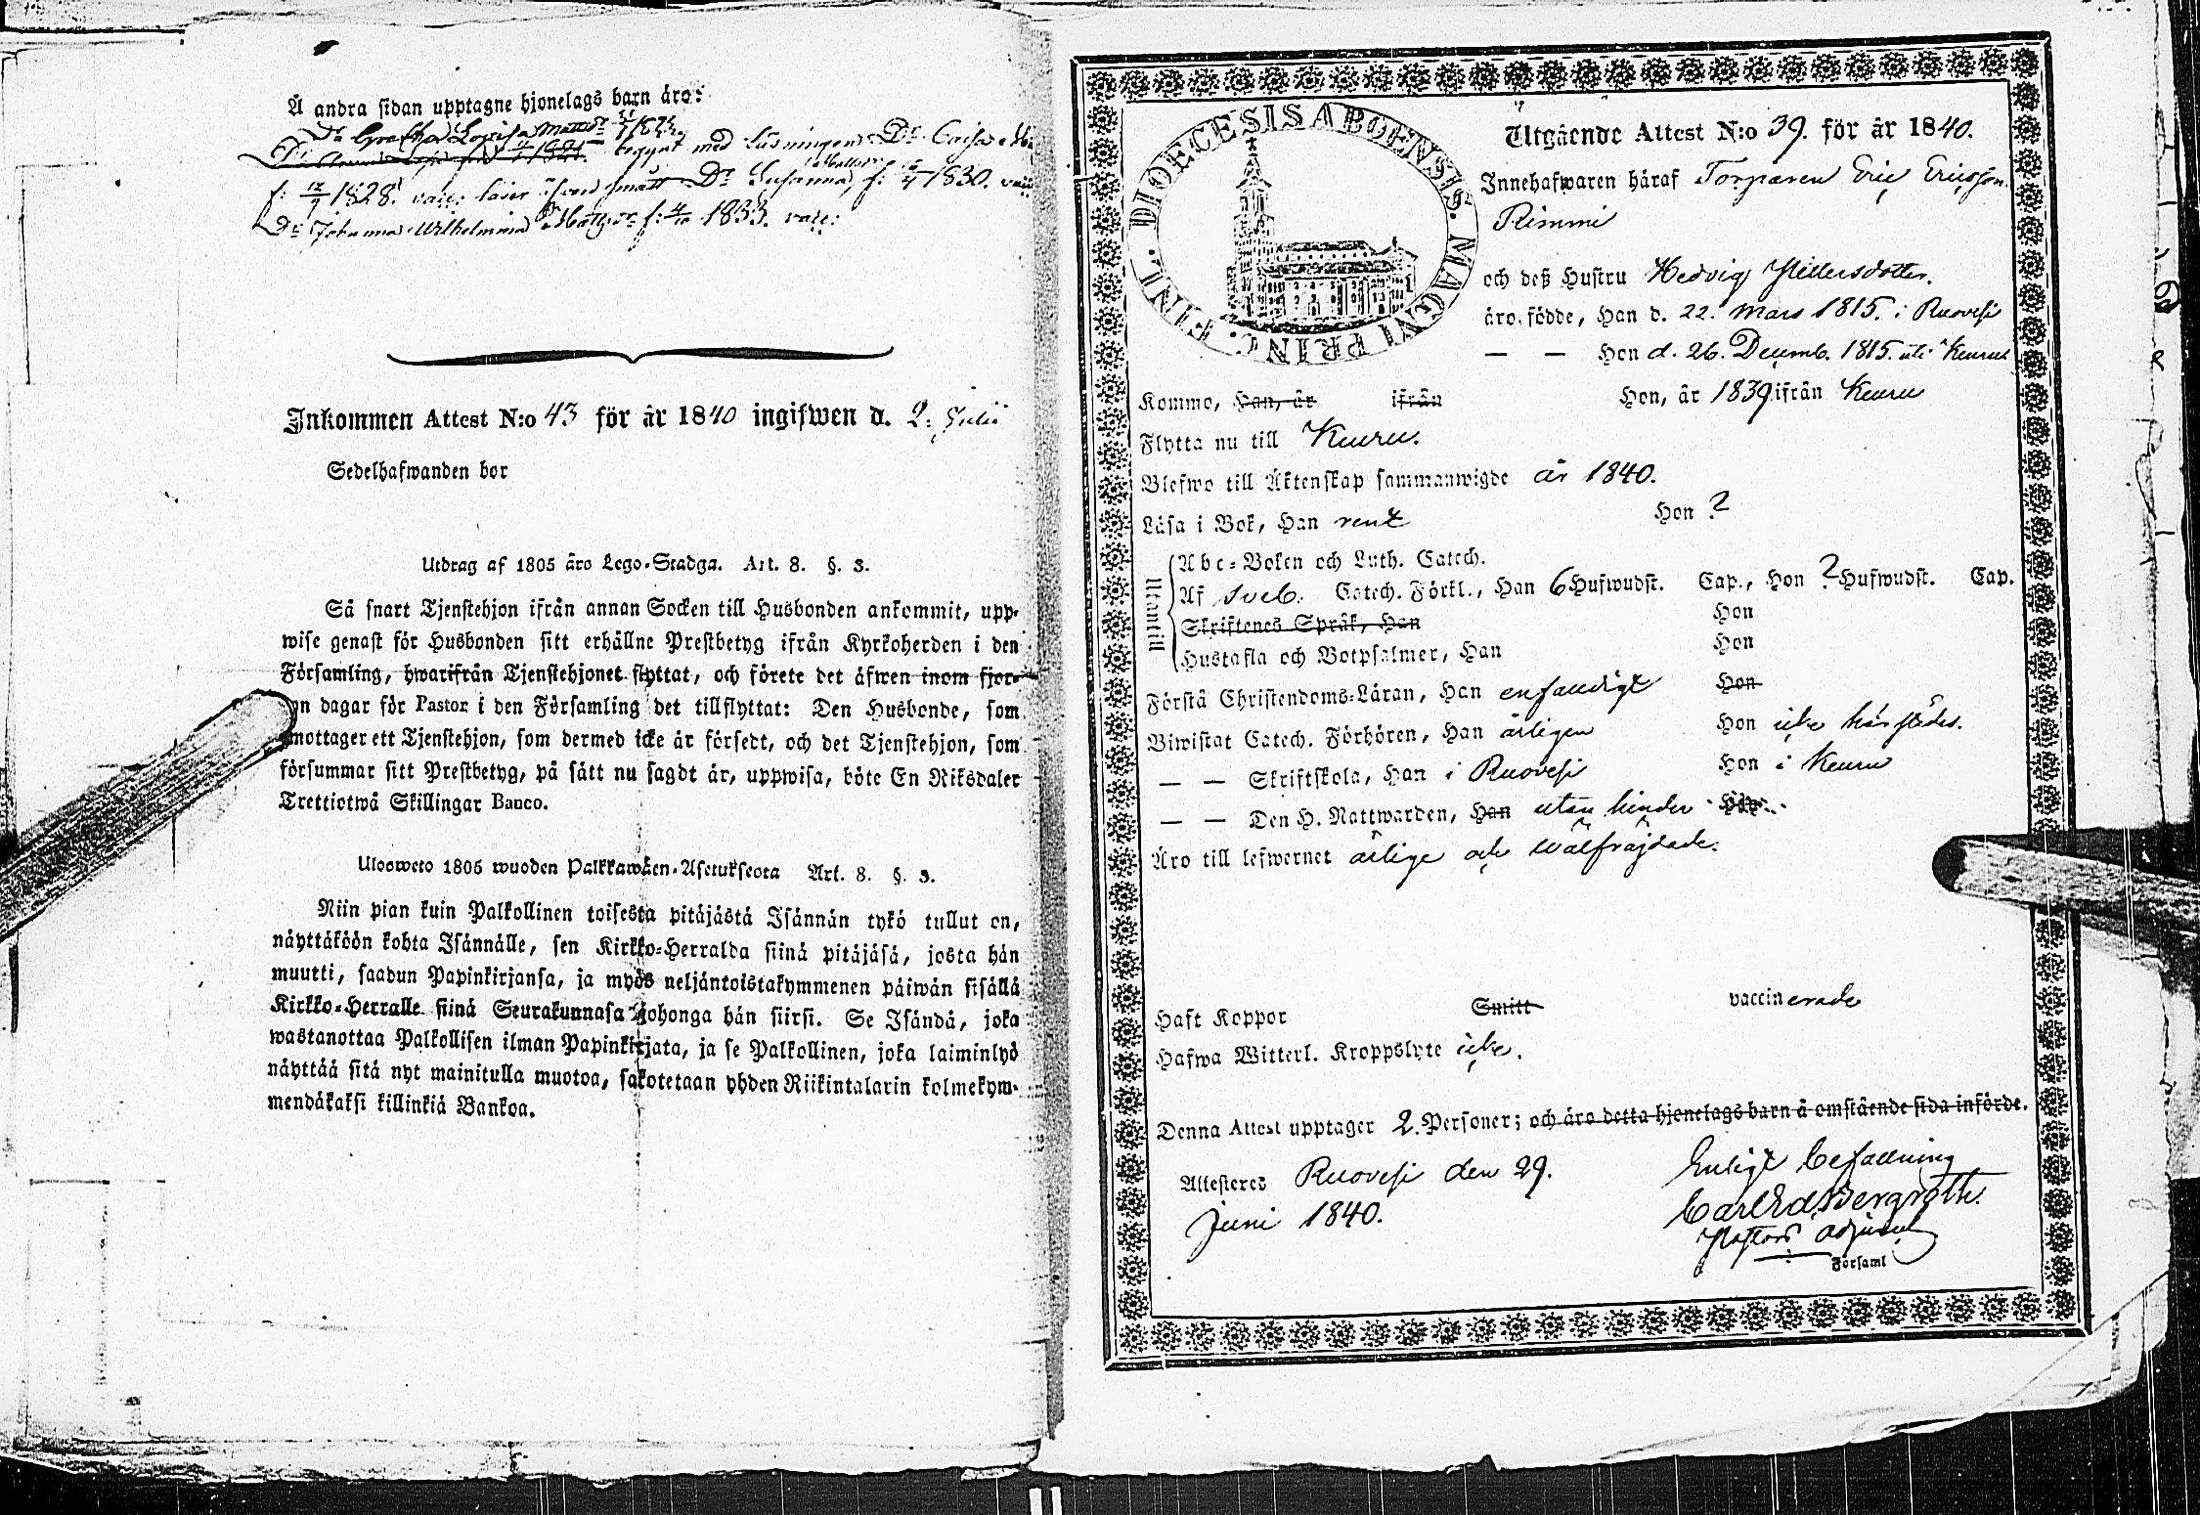 Å andra sidan upptagne hjonelags barn äro:
Dr Gretha Lovisa Mattsdr 1825
begynt med läsningen Dr Caisa
f: 12/7 1828. vacc: läser äfven smått Dr Susanna, f: 1830. vacc:
Dr Johanna Wilhelmina Mattsdr f: 4/10 1833. vacc:
Inkommen Attest N:o 43 för år 1840 ingifwen d. 2: Julii
Sedelhafwanden bor
Utdrag af 1805 års Lego-Stadga. Art. 8. §. 3.
Så snart Tjenstehjon ifrån annan Socken till Husbonden ankommit, upp-
wise genast för Husbonden sitt erhållne Prestbetyg ifrån Kyrkoherden i den
Församling, hwarifrån Tjenstehjonet flyttat, och förete det äfwen inom fjor-
on dagar för Pastor i den Församling det tillflyttat: Den Husbonde, som
mottager ett Tjenstehjon, som dermed icke är försedt, och det Tjenstehjon, som
försummar sitt Prestbetyg, på sätt nu sagdt är, uppwisa, böte En Riksdaler
Trettiotwå Skillingar Banco.
Ulosweto 1805 wuoden Palkkawäen-Asetuksesta Art. 8. §. 3.
Niin pian kuin Palkollinen toisesta pitäjästä Isännän tykö tullut on,
näyttäköön kohta Isännälle, sen Kirkko-Herralda siinä pitäjäsä, josta hän
muutti, saadun Papinkirjansa, ja myös neljäntoistakymmenen päiwän sisällä
Kirkko-Herralle siinä Seurakunnasa johonga hän siirsi. Se Isändä, joka
wastanottaa Palkollisen ilman Papinkirjata, ja se Palkollinen, joka laiminlyö
näyttää sitä nyt mainitulla muotoa, sakotetaan yhden Riikintalarin kolmekym-
mendäkaksi killinkiä Bankoa.
DIOECESIS ABOENSIS. MAGNI PRINC. FINL.
Utgående Attest N:o 39. för år 1840.
Innehafwaren häraf Torparen Eric Ericsson
Rimmi
och deß Hustru Hedvig Hillersdotter.
äro födde, Han d. 22. Mars 1815. i Ruovesi
— — Hon d. 26. Decemb. 1815. uti Keuru
Kommo, Han, år ifrån Hon, år 1839 ifrån Keuru
Flytta nu till Keuru.
Blefwo till Äktenskap sammanwigde år 1840.
Läsa i Bok, Han rent Hon ?
Utantill
Abc-Boken och Luth. Catech.
Af Sveb. Catech. Förkl., Han 6 Hufwudst. Cap., Hon ? Hufwudst. Cap.
Skriftenes Språk, Han Hon
Hustafla och Botpsalmer, Han Hon
Förstå Christendoms-Läran, Han enfaldigt Hon
Biwistat Catech. Förhören, Han årligen Hon icke härstädes.
— — Skriftskola, Han i Ruovesi Hon i Keuru
— — Den H. Nattwarden, Han utan hinder Hon
Äro till lefwernet ärlige och wälfräjdade.
Haft Koppor Smitt vaccinerade
Hafwa Witterl. Kroppslyte icke.
Denna Attest upptager 2. Personer; och äro detta hjonelags barn å omstående sida införde.
Attesteres Ruovesi den 29.
Juni 1840.
Enligt befallning
Carl Ed Bergroth.
Pastors adjunct
Församl